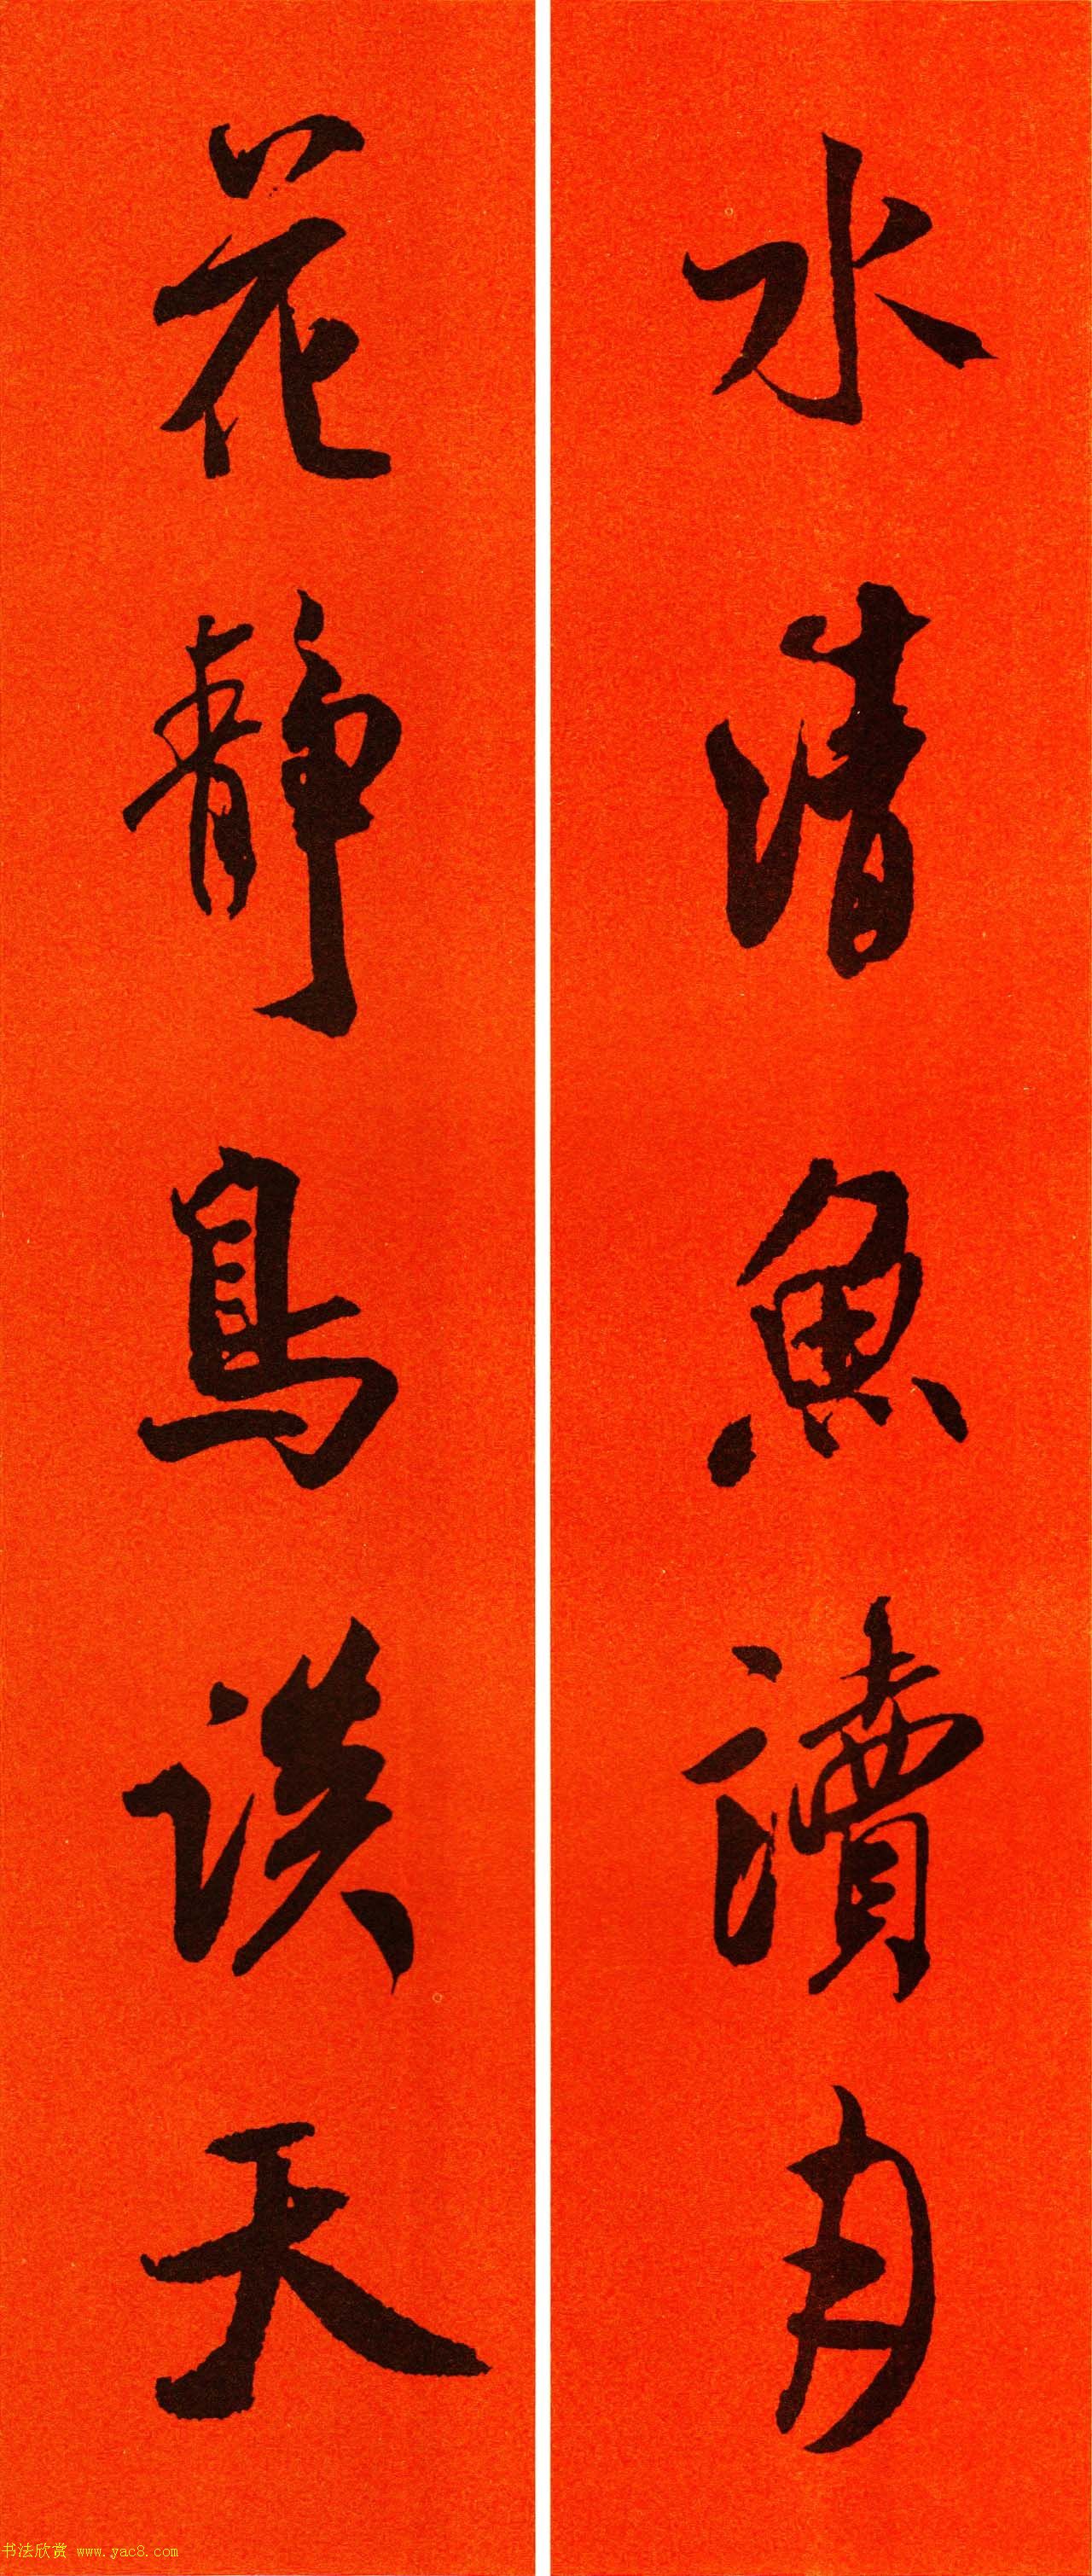 水清魚讀月
花静鳥談天
书法欣赏 www.yac8.com